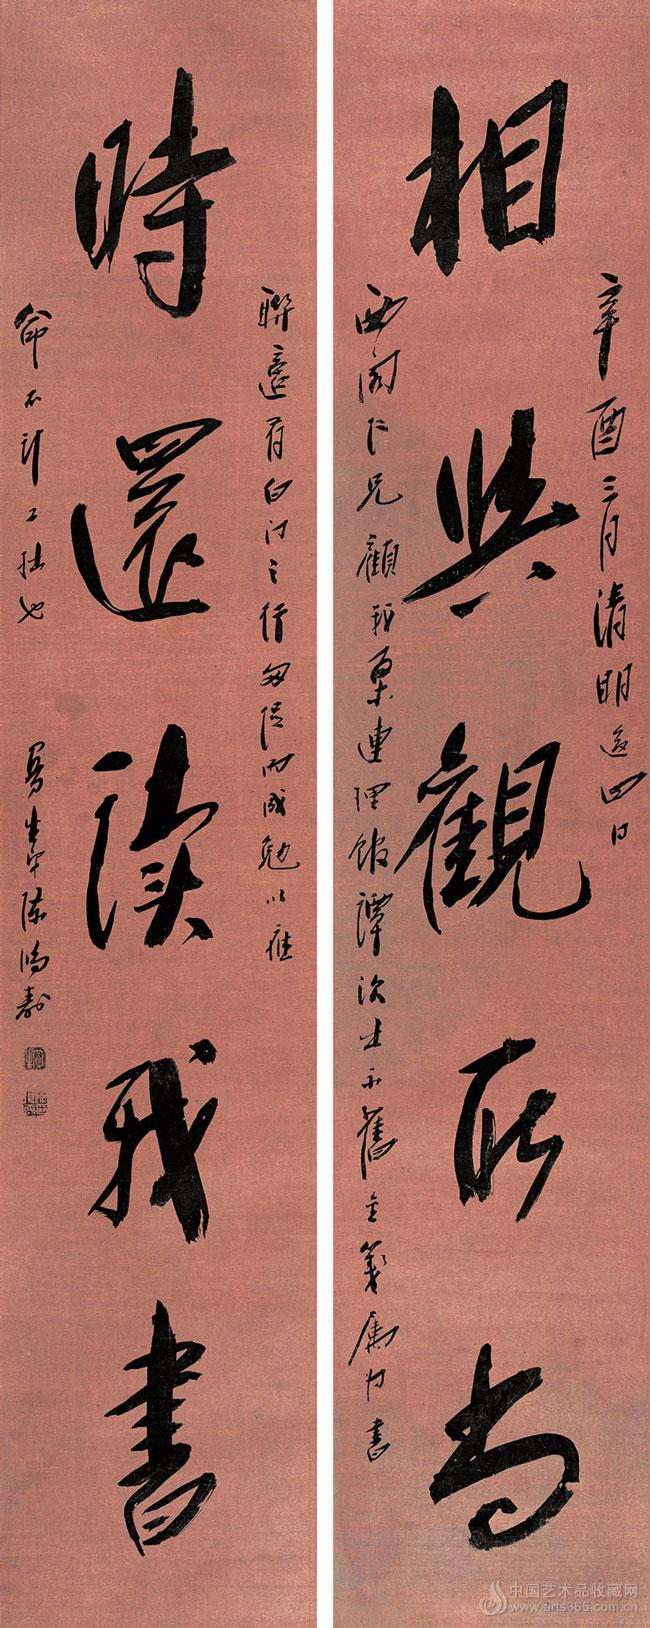 相與觀所尚
辛酉三月清明後四日
西園仁兄顧我桑連理館譚次出示舊金箋屬書
時還讀我書
聯適有白門之行匆促內成勉以應
命不計工拙也 曼生弟陳鴻壽
中国艺术品收藏网
www.arts365.com.cn